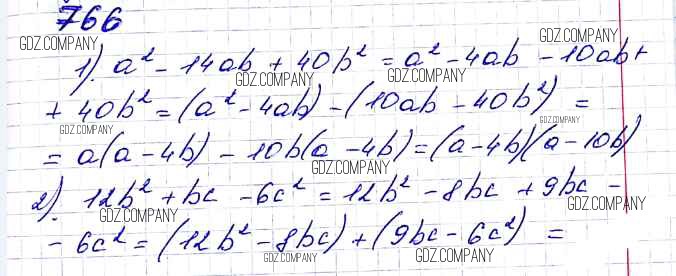 766
GDZ.COMPANY GDZ.COMPANY
1). a² - 14ab + 40b² = a² - 4ab - 10ab +
GDZ.COMPANY GDZ.COMPANY
+ 40b² = (a² - 4ab) - (10ab - 40b²) =
GDZ.COMPANY GDZ.COMPANY
= a(a - 4b) - 10b(a - 4b) = (a - 4b)(a - 10b)
GDZ.COMPANY
2). 12b² + bc - 6c² = 12b² - 8bc + 9bc -
GDZ.COMPANY GDZ.COMPANY
- 6c² = (12b² - 8bc) + (9bc - 6c²) =
GDZ.COMPANY GDZ.COMPANY